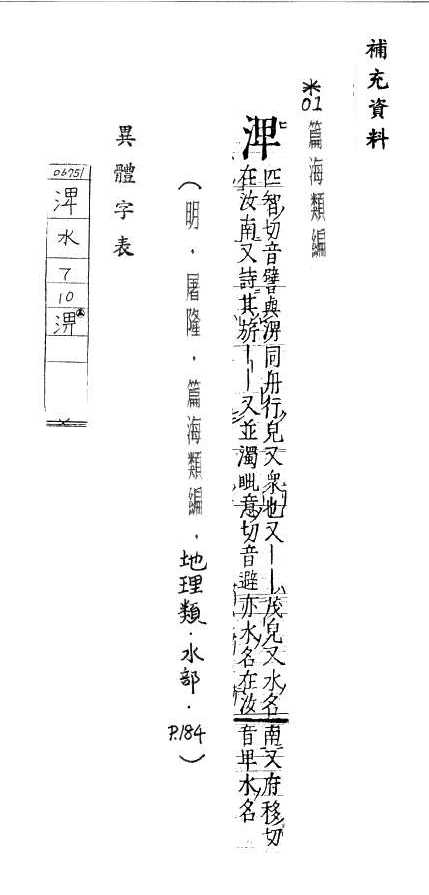 補充資料
*01 篇海類編
渒
匹智切音譬與淠同舟行皃又衆也又||茂皃又水名
在汝南又詩其旂||又並濁毗意切音避亦水名在汝
南又府移切
音卑水名
(明.屠隆.篇海類編.地理類.水部.P.184)
異體字表
06751
渒
水
7
10
淠